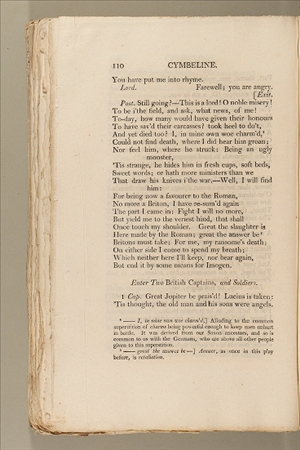 110 CYMBELINE.
You have put me into rhyme.
Lord. Farewell; you are angry.
[Exit.
Post. Still going?—This is a lord! O noble misery!
To be i'the field, and ask, what news, of me!
To-day, how many would have given their honours
To have sav'd their carcasses? took heel to do't,
And yet died too? I, in mine own woe charm'd,⁸
Could not find death, where I did hear him groan;
Nor feel him, where he struck: Being an ugly
monster,
'Tis strange, he hides him in fresh cups, soft beds,
Sweet words; or hath more ministers than we
That draw his knives i'the war.—Well, I will find
him:
For being now a favourer to the Roman,
No more a Briton, I have re-sum'd again
The part I came in: Fight I will no more,
But yield me to the veriest hind, that shall
Once touch my shoulder. Great the slaughter is
Here made by the Roman; great the answer be⁹
Britons must take; For me, my ransome's death;
On either side I come to spend my breath;
Which neither here I'll keep, nor bear again,
But end it by some means for Imogen.
Enter Two British Captains, and Soldiers.
1 Cap. Great Jupiter be prais'd! Lucius is taken:
'Tis thought, the old man and his sons were angels.
⁸ —— I, in mine own woe charm'd,] Alluding to the common
superstition of charms being powerful enough to keep men unhurt
in battle. It was derived from our Saxon ancestors, and so is
common to us with the Germans, who are above all other people
given to this superstition.
⁹ —— great the answer be—] Answer, as once in this play
before, is retaliation.